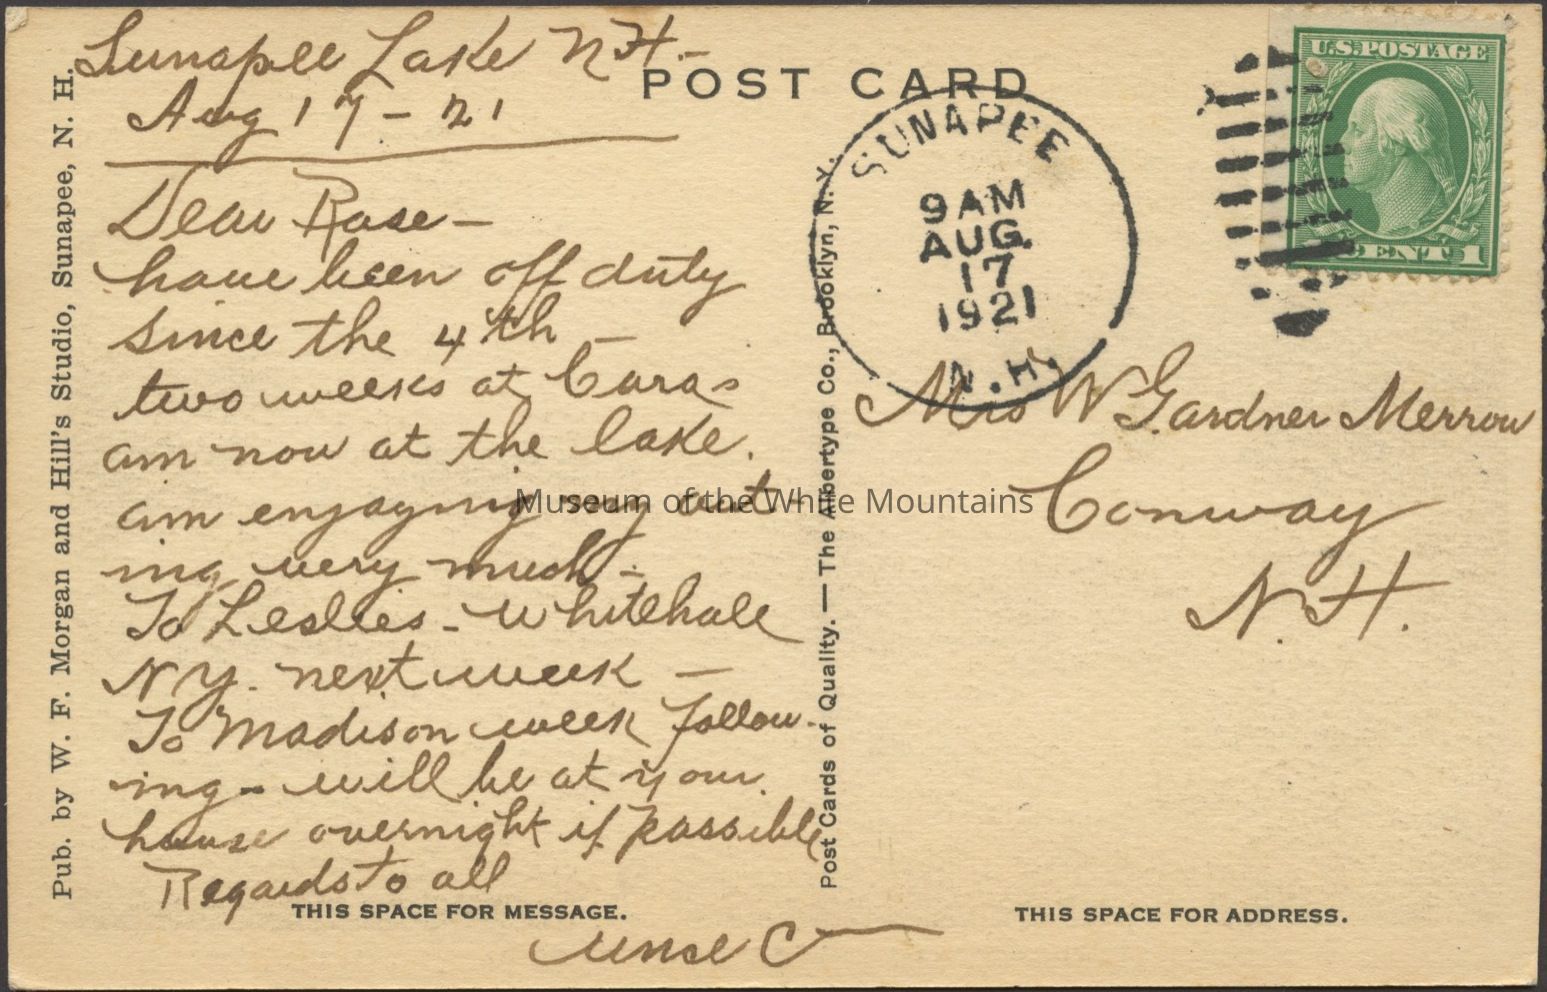 Sunapee Lake N H -
Aug 17 - 21
Dear Rose -
have been off duty
since the 4th -
two weeks at Caras
am now at the lake.
am enjoying my out-
ing very much -
To Leslies - Whitehall
N Y. next week -
To Madison week follow-
ing - will be at your
house overnight if possible
Regards to all
C
THIS SPACE FOR MESSAGE.
Pub. by W. F. Morgan and Hill's Studio, Sunapee, N. H.
POST CARD
Post Cards of Quality. — The Albertype Co., Brooklyn, N. Y.
SUNAPEE
9 AM
AUG.
17
1921
N. H.
U.S. POSTAGE
CENT 1
Mrs W Gardner Merrow
Conway
N. H.
THIS SPACE FOR ADDRESS.
Museum of the White Mountains